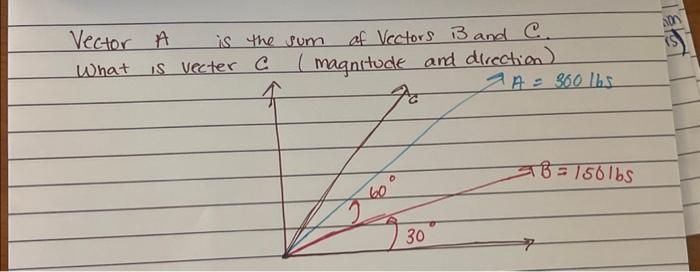 Vector A is the sum of Vectors B and C.
What is vecter C (magnitude and direction)
A = 300 lbs
C
B = 150 lbs
60°
30°